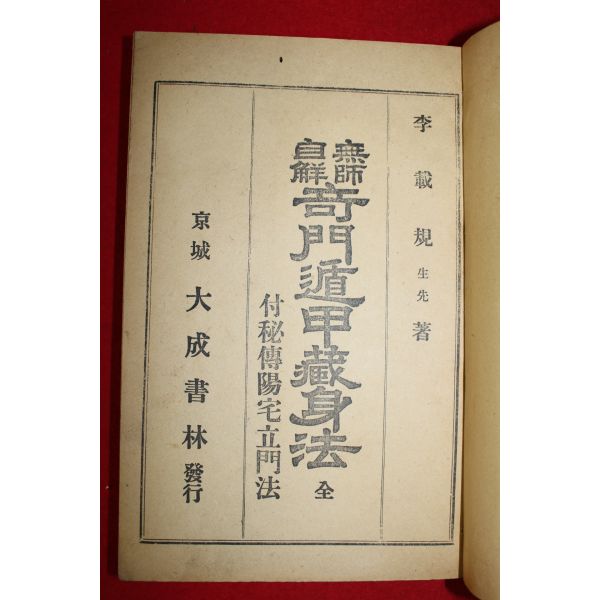 李載規 生先 著
無師自解
奇門遁甲藏身法 全
付秘傳陽宅立門法
京城 大成書林 發行